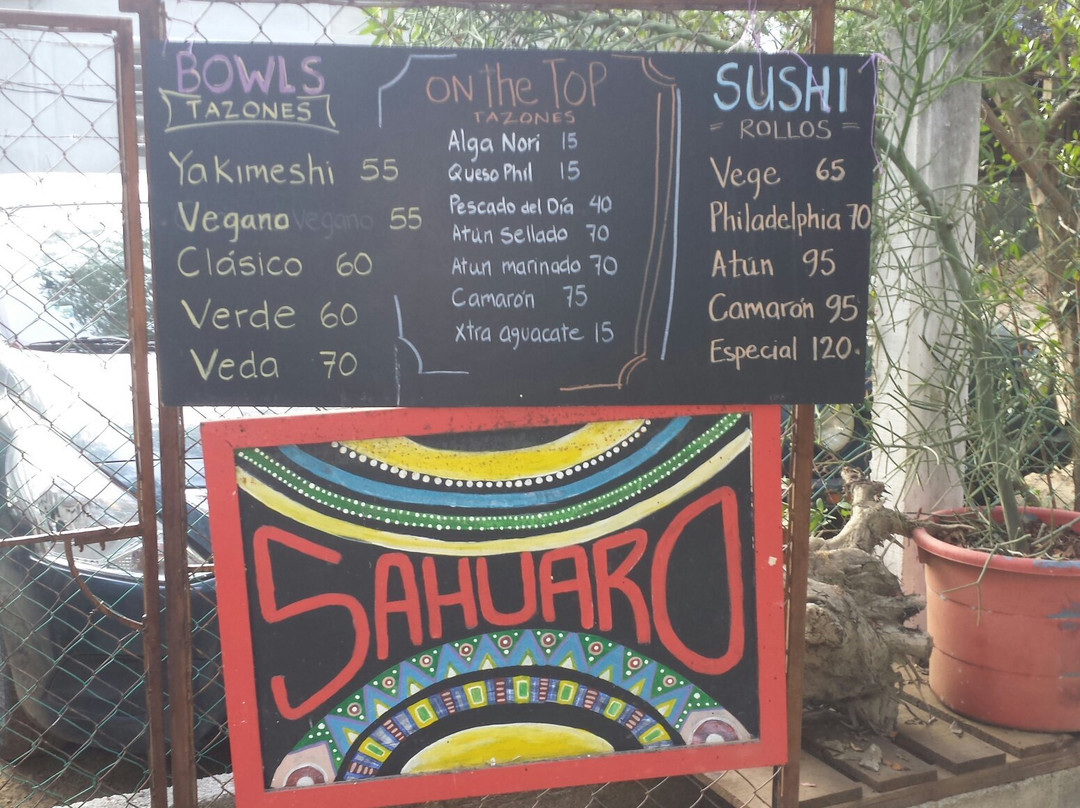 BOWLS
TAZONES
Yakimeshi 55
Vegano Vegano 55
Clásico 60
Verde 60
Veda 70
ON the TOP
TAZONES
Alga Nori 15
Queso Phil 15
Pescado del Día 40
Atún Sellado 70
Atun marinado 70
Camarón 75
xtra aguacate 15
SUSHI
= ROLLOS =
Vege 65
Philadelphia 70
Atún 95
Camarón 95
Especial 120.
SAHUARO